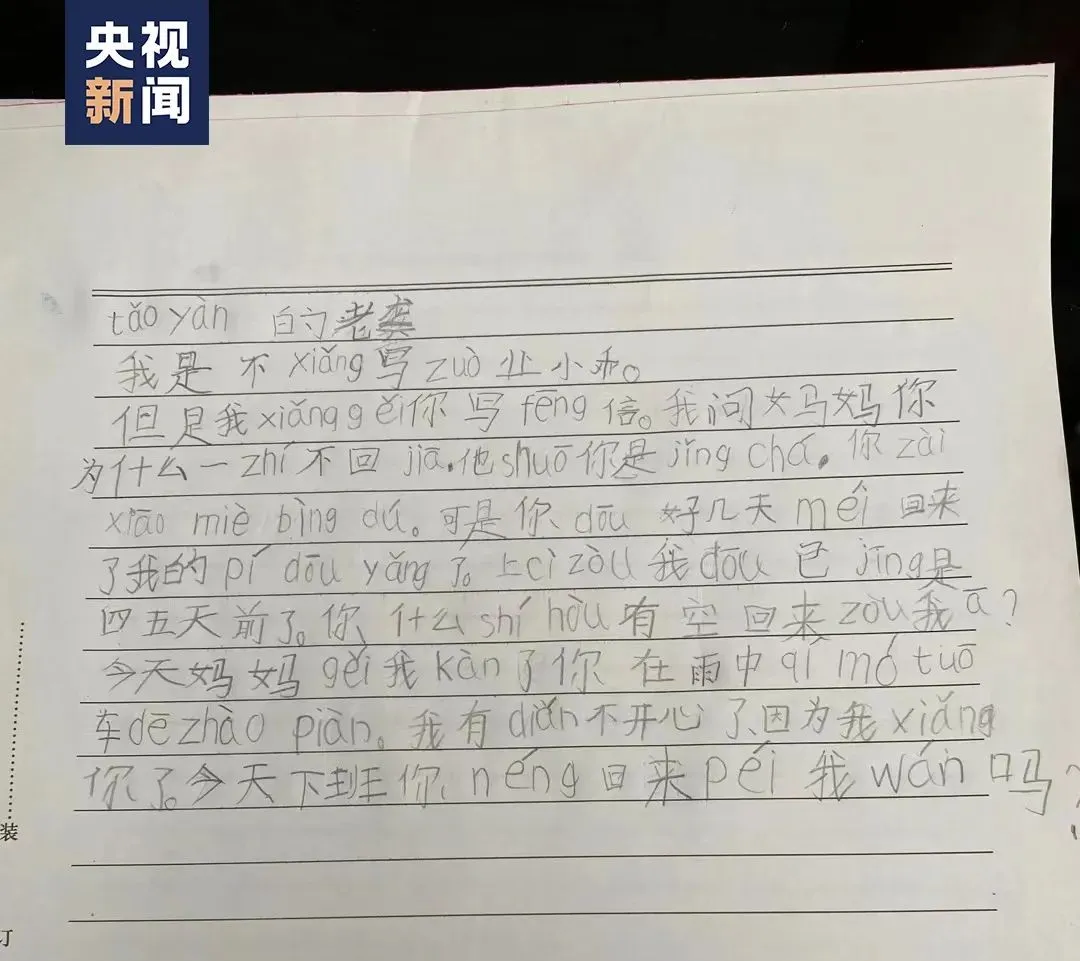 央视
新闻
tǎo yàn 的老龚
我是不 xiǎng 写 zuò 业小和。
但是我 xiǎng gěi 你写 fēng 信。我问妈妈你
为什么一 zhí 不回 jiā，他 shuō 你是 jǐng chá，你 zài
xiāo miè bìng dú。可是你 dōu 好几天 méi 回来
了我的 pí dōu yǎng 了。上 cì zòu 我 dōu 已 jīng 是
四五天前了。你什么 shí hòu 有空回来 zòu 我 ā？
今天妈妈 gěi 我 kàn 了你在雨中 qí mó tuō
车 dē zhào piàn。我有 diǎn 不开心了、因为我 xiǎng
你了。今天下班你 néng 回来 péi 我 wán 吗？
装
订